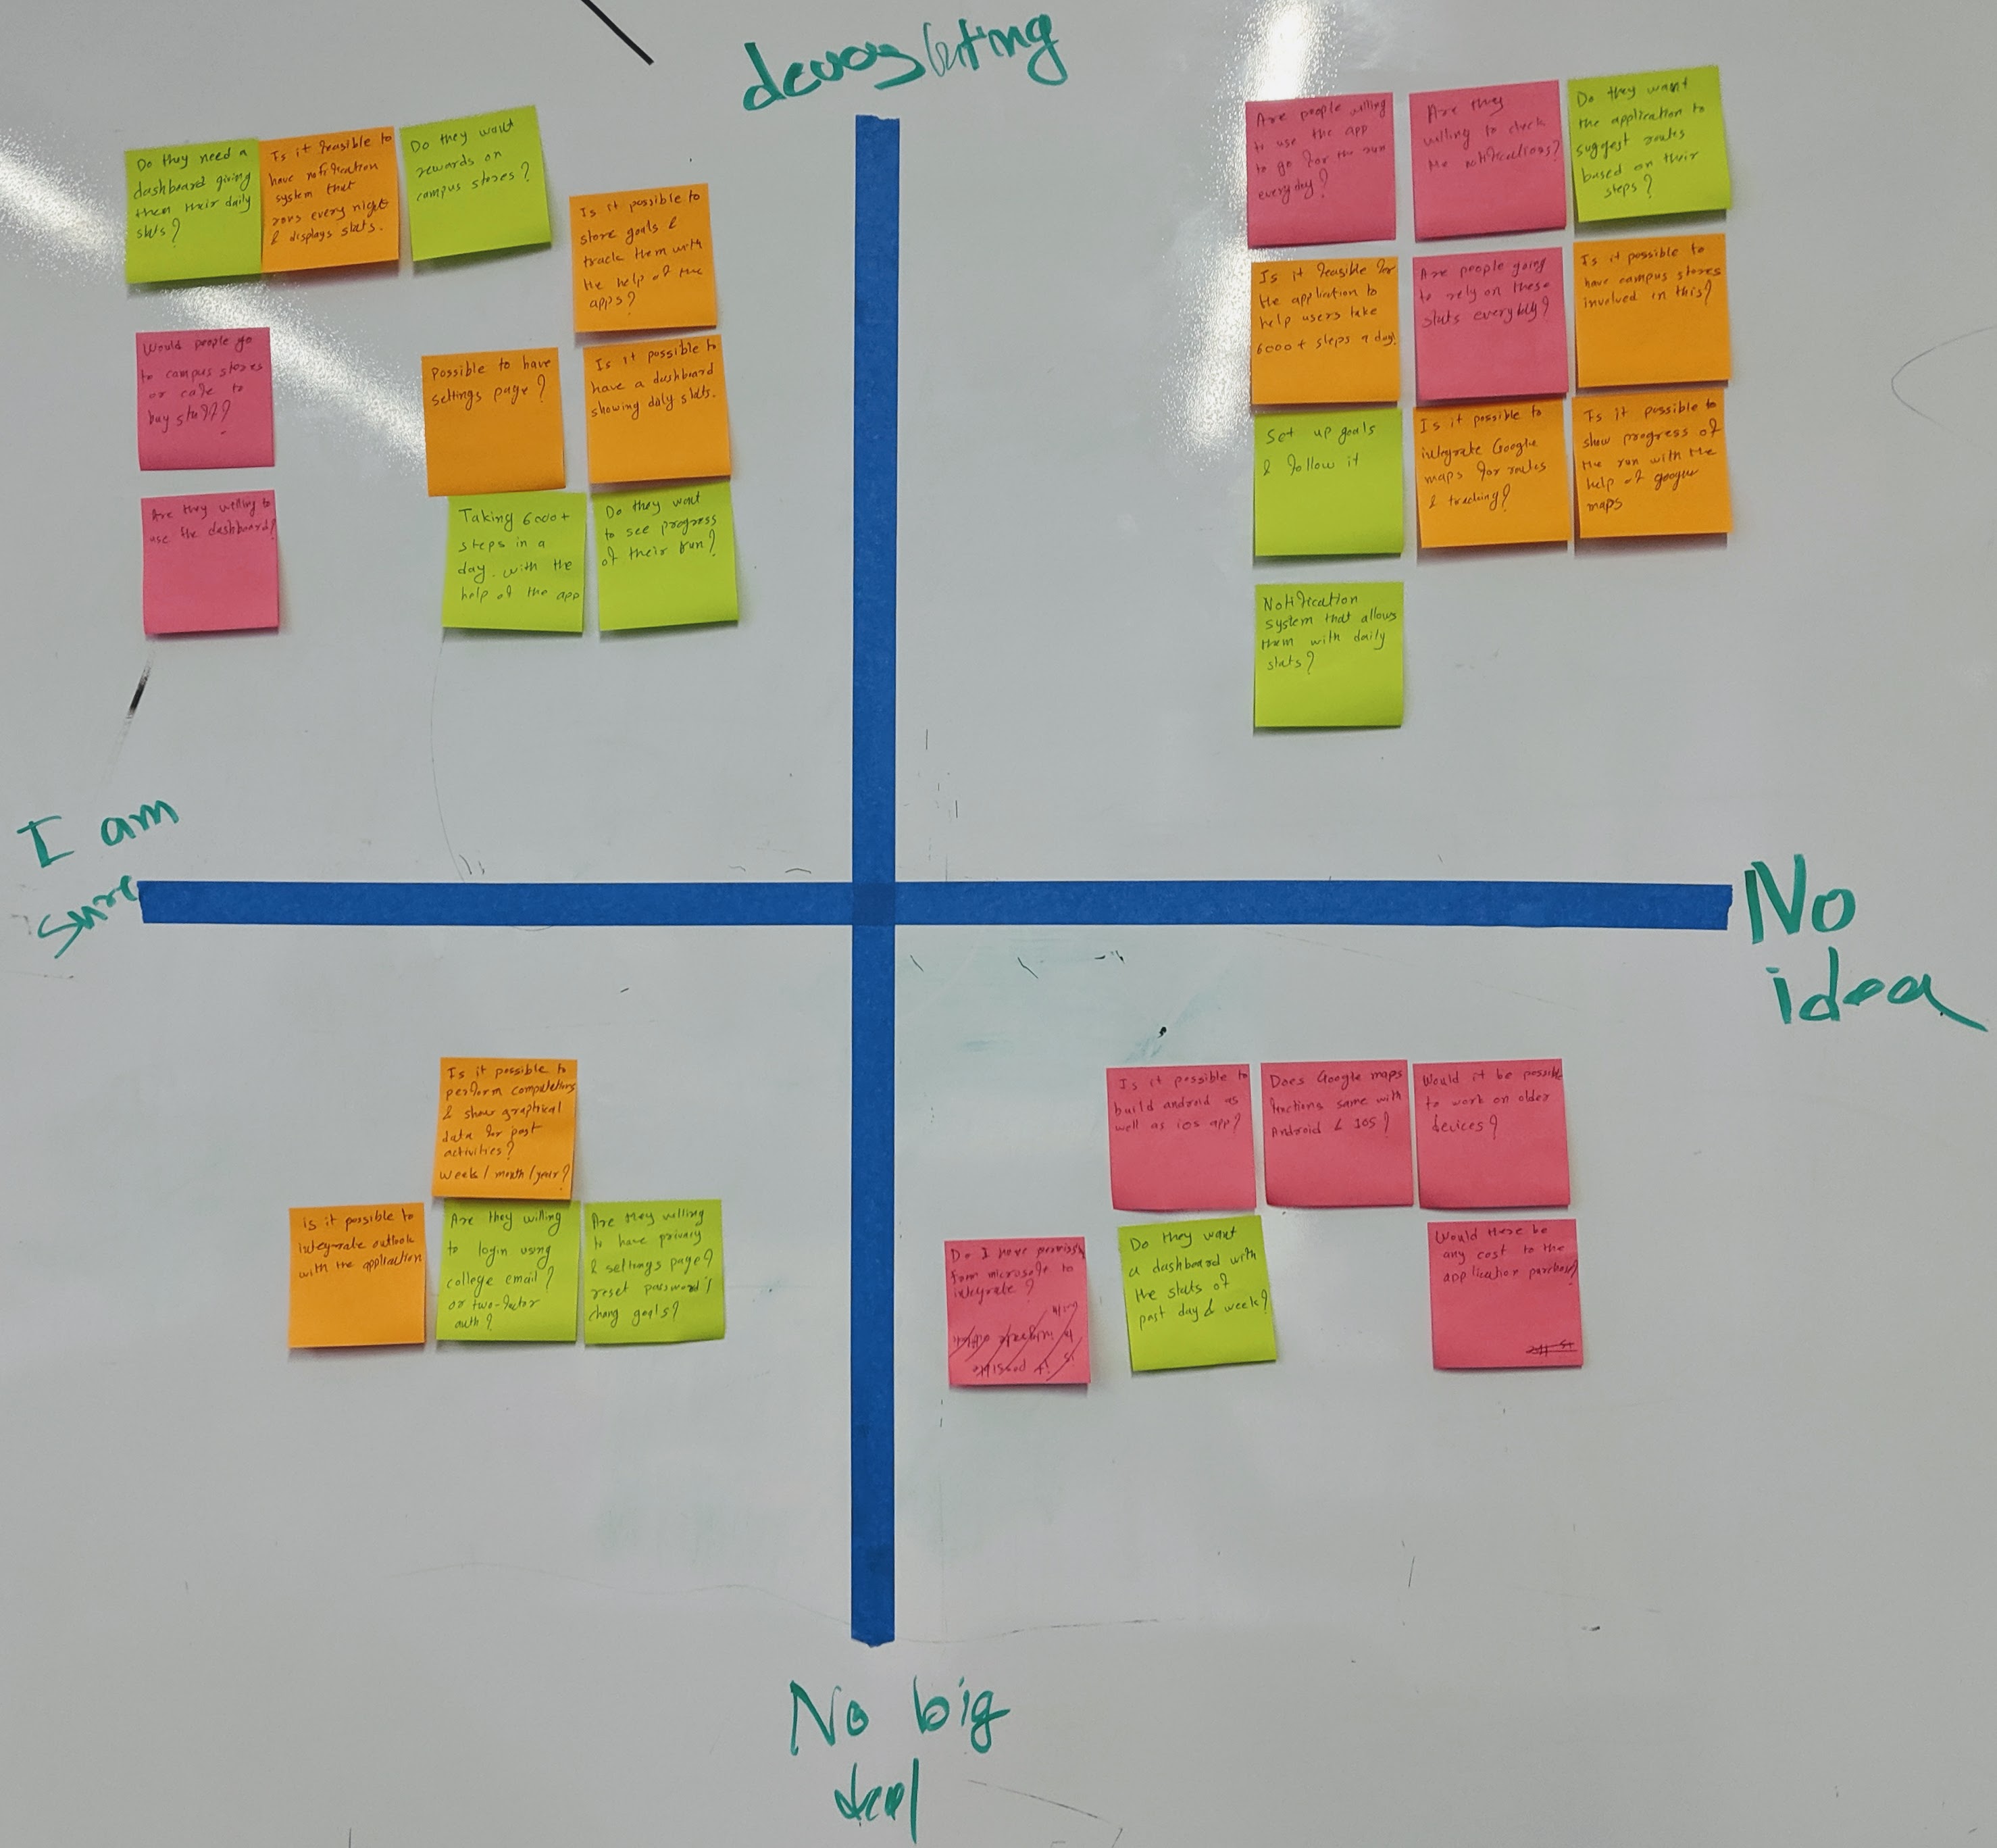 devastating
Do they need a
dashboard giving
them their daily
stats?
Is it feasible to
have notification
system that
runs every night
& displays stats.
Do they want
rewards on
campus stores?
Is it possible to
store goals &
track them with
the help of the
apps?
Would people go
to campus stores
or cafe to
buy stuff?
Possible to have
settings page?
Is it possible to
have a dashboard
showing daily stats.
Are they willing to
use the dashboard?
Taking 6000+
steps in a
day. with the
help of the app
Do they want
to see progress
of their run?
Are people willing
to use the app
to go for the run
everyday?
Are they
willing to check
the notifications?
Do they want
the application to
suggest routes
based on their
steps?
Is it feasible for
the application to
help users take
6000+ steps a day?
Are people going
to rely on these
stats everyday?
Is it possible to
have campus stores
involved in this?
Set up goals
& follow it
Is it possible to
integrate Google
maps for routes
& tracking?
Is it possible to
show progress of
the run with the
help of google
maps
Notification
system that allows
them with daily
stats?
I am
sure
No
idea
Is it possible to
perform computations
& show graphical
data for past
activities?
week/month/year?
is it possible to
integrate outlook
with the application
Are they willing
to login using
college email?
or two-factor
auth?
Are they willing
to have privacy
& settings page?
reset password/
chang goals?
Is it possible to
build android as
well as ios app?
Does Google maps
functions same with
Android & IOS?
Would it be possible
to work on older
devices?
Do I have permissn
from microsoft to
integrate?
is it possible
to integrate outlook
with
Do they want
a dashboard with
the stats of
past day & week?
Would there be
any cost to the
application purchase?
No big
deal